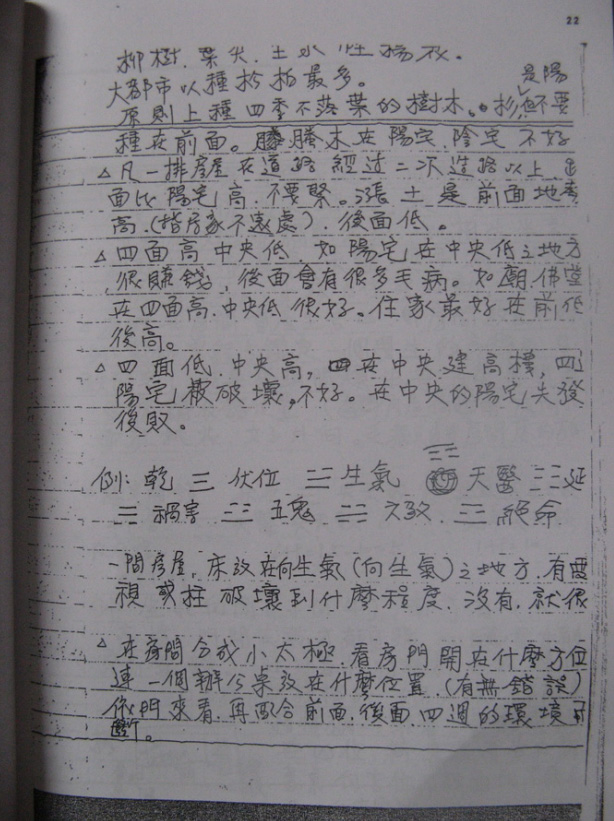 22
柳樹.葉尖.土水性楊衣.
大都市以種松柏最多。
是陽
原則上種四季不落葉的樹木。杉但不要
種在前面。騰木在陽宅.陰宅不好
△凡一排房屋在道路經过二次造路以上
面比陽宅高.不要緊。漲土是前面地
高.(指房家不遠處).後面低。
△四面高中央低.如陽宅在中央低之地方
.很賺錢.後面會有很多毛病。如廟.佛堂
在四面高.中央低很好。住家最好在前低
後高。
△四面低.中央高,四在中央建高樓,四
陽宅被破壞,不好。在中央的陽宅先發
後敗。
例:乾☰伏位 生氣 天醫 延
禍害 五鬼 六殺 絕命
一間房屋.床放在向生氣(向生氣)之地方.有
視或拄破壞到什麼程度.沒有.就很
△在房間分成小太極.看房門開在什麼方位
連一個辦公桌放在什麼位置.(有無錯誤)
依門來看.再配合前面.後面.四週的環境
斷。